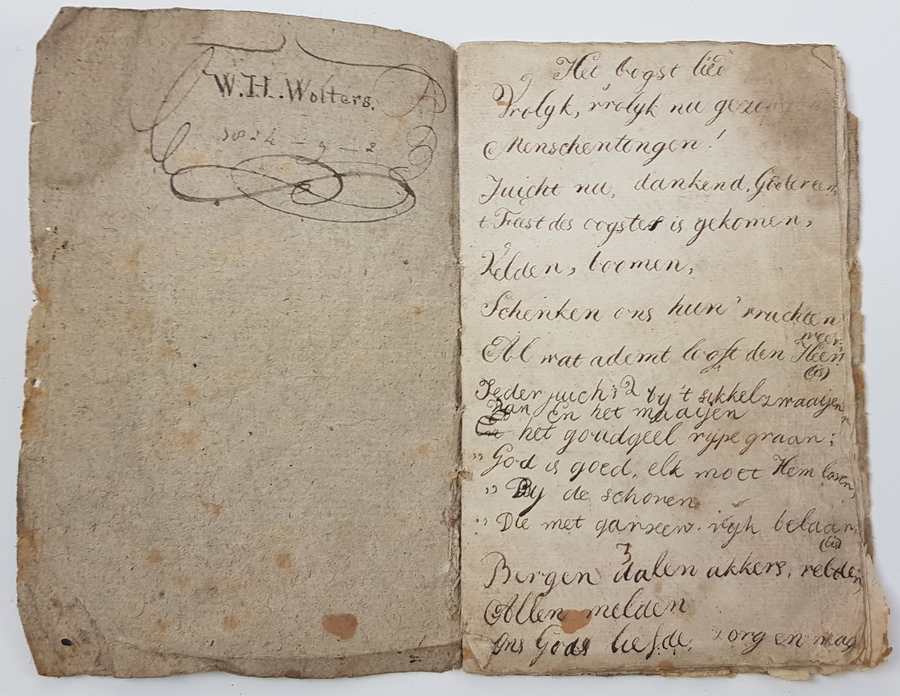 W.H. Wolters.
Het oogst lied
Vrolyk, vrolyk nu
Menschentongen!
Juicht nu, dankend,
t Feest des oogstes is gekomen,
Velden, boomen,
Schenken ons hun' vruchten
weer.
Al wat ademt looft den Heer
(bis)
2
Ieder juich' by 't sikkelzwaaijen
En het maaijen
Van het goudgeel rype graan;
"God is goed, elk moet Hem loven,
" By de schoven
" Die met garven ryk belaân
(bis)
3
Bergen dalen akkers, velden
Allen melden
Ons Gods liefde, zorg en